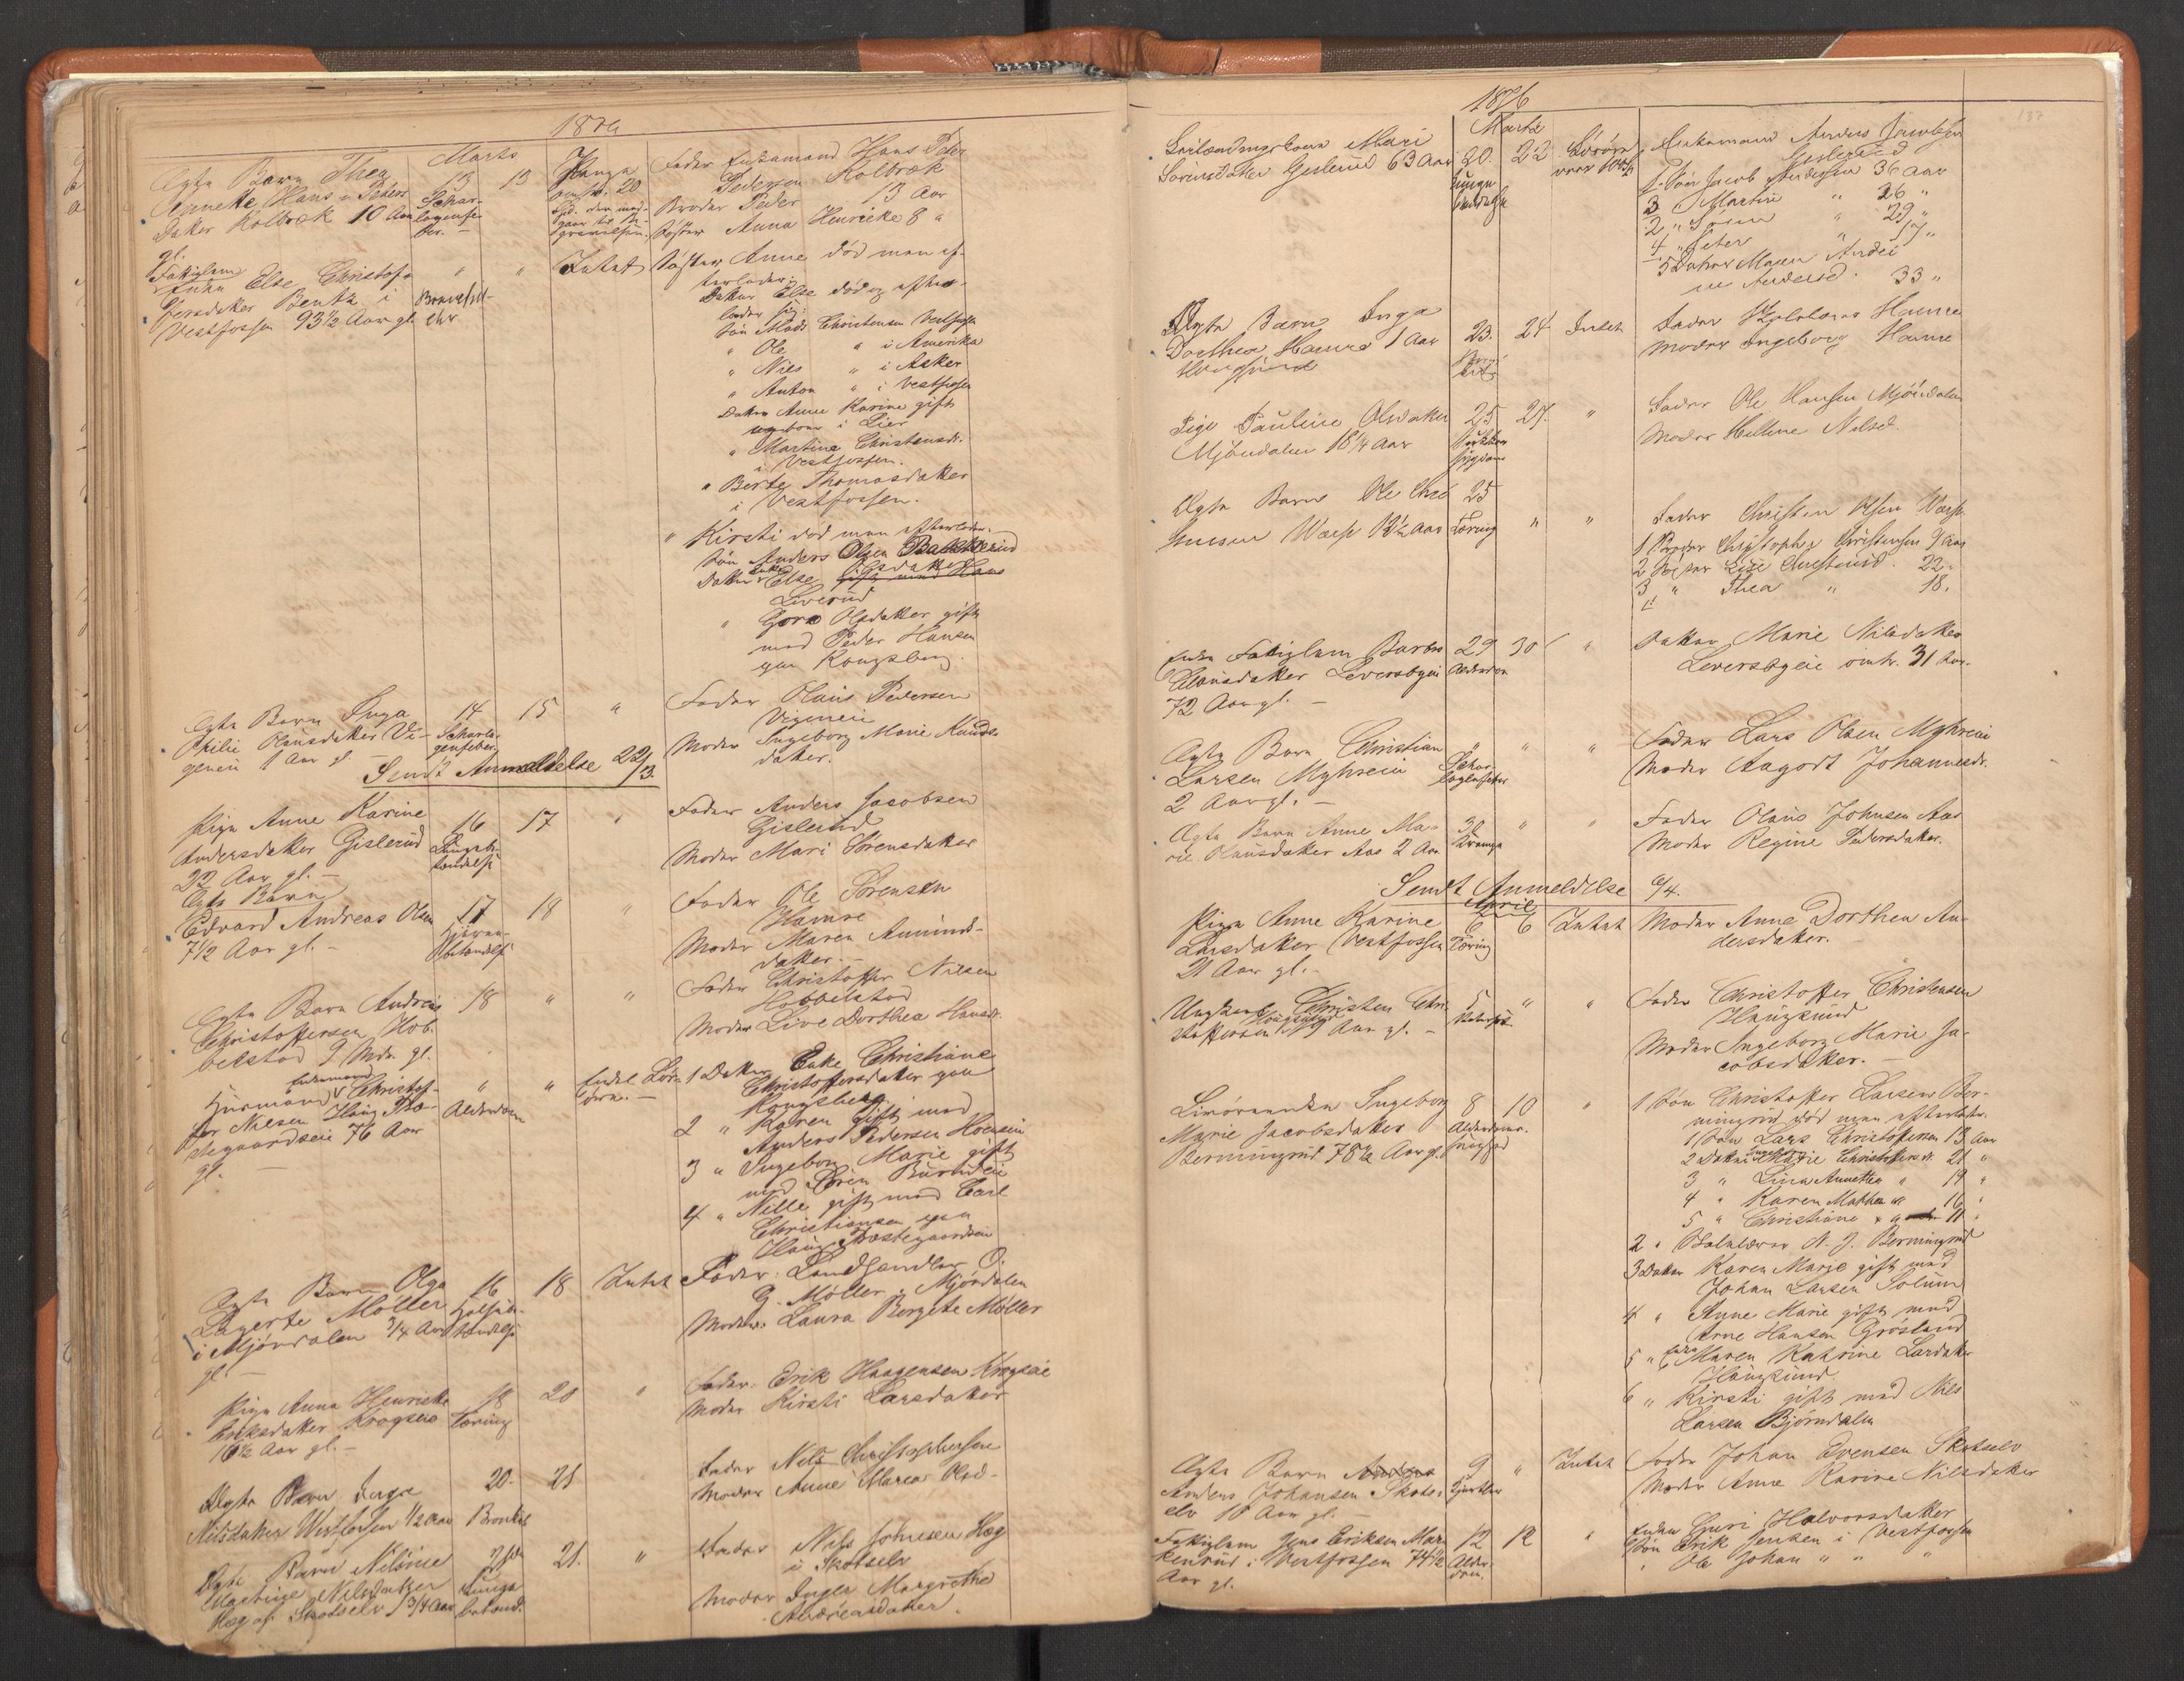 1876
Marts
Ægte Barn Thea
Annette Hans Peders
Datter Kolbræk 10 Aar
gl.
13
Skar-
lagensfe-
ber.
13
Penge
omtr. 20
Spd. der med-
gaar til Be-
gravelsen.
Fader Enkemand Hans Peder
Pedersen Kolbræk
Broder Peder 13 Aar
Søster Anna Henrikke 8 "
Fattiglem
Enke Else Christof-
fersdatter Bentz i
Vestfossen 93½ Aar gl.
"
"
Intet
Søster Anne død men ef-
terlader:
Datter Else død og efter-
lader sig:
Søn Mads Christensen Vestfossen
" Ole " i Amerika
" Niels " i Asker
" Anton " i Vestfossen
Datter Anne Karine gift
og boer i Lier
" Martine Christensdr.
i Vestfossen.
" Berte Thomasdatter
i Vestfossen.
" Kirsti død men efterlader.
Søn Anders Olsen
Datter Enke Else Olsdatter gift med Hans
Liverud
" Goro Olsdatter gift
med Peder Hansen
paa Kongsberg.
Ægte Barn Inga
Othilie Olausdatter Vi-
geneie 1 Aar gl.
14
Skarla-
gensfeber
15
"
Fader Olaus Pedersen
Vigeneie
Moder Ingeborg Marie Knuds-
datter.
Sendt Anmeldelse 22/3.
Pige Anne Karine
Andersdatter Gislerud
22 Aar gl. -
16
Lungebe-
tændelse
17
"
Fader Anders Jacobsen
Gislerud
Moder Mari Sørensdatter
Ægte Barn
Edvard Andreas Olsen
7½ Aar gl. -
17
Hjerne-
betændelse
18
"
Fader Ole Sørensen
Hamre
Moder Maren Amunds-
datter. -
Ægte Barn Andreas
Christoffersen Hob-
belstad 9 Mdr. gl.
18
"
"
Fader Christoffer Nilsen
Hobbelstad
Moder Live Dorthea Hansdr.
Enkemand
Huusmand Christof-
fer Nilsen Haug Præ-
stegaardseie 76 Aar
gl. -
"
Alderdom
"
Endel Løs-
øre. -
1 Datter Enke Christiane
Christoffersdatter paa
Kongsberg
2 " Karen gift med
Anders Pedersen Hoenseie
3 " Ingeborg Marie gift
med Søren Burudeie
4 " Nille gift med Carl
Christiansen paa
Haug Præstegaardseie
Ægte Barn Olga
Lagerte Møller
i Mjøndalen ¾ Aar
gl. -
16
Halsbe-
tændelse
18
Intet
Fader: Landhandler O.
G. Møller, Mjøndalen
Moder: Laura Bergete Møller
Pige Anna Henrikke
Eriksdatter Krogseie
16½ Aar gl. -
18
Tæring
20
"
Fader: Erik Haagensen Krogseie
Moder Kirsti Larsdatter
Ægte Barn Inga
Nilsdatter Vestfossen ½ Aar
20.
Bronkit
21
Fader Nils Christophersen
Moder Anne Maria Olsd-
Ægte Barn Nilsine
Martine Nilsdatter
Hæg af Skotselv 1¾ Aar
Lunge
betænd.
21.
"
Fader Nils Johnsen Hæg
i Skotselv
Moder Inger Margrethe
Andreasdatter.
1876
Marts
Mari
Sørensdatter Gislerud 63 Aar
20.
Lunge
betændelse
22
Enkemand Anders Jacobsen
Gislerud
1. Søn Jacob Andersen 36 Aar
3 " Martin " 26 "
2 " Søren " 29 "
4 " Peter " 17 "
5 Datter Maren Andrine
Andersd. 33 "
Ægte Barn Inga
Dorthea Hamre 1 Aar
Hougsund
23.
24
Intet
Fader Hamre
Moder Ingeborg Hamre
Pige Pauline Olsdatter
Mjøndalen 16¼ Aar
25
27.
"
Fader Ole Hansen Mjøndalen
Moder Helene Nilsd.
Ægte Barn Ole Chri
stensen Warp 13½ Aar
25
Tæring
"
"
Fader Christen Olsen Warp
1 Broder Christopher Christensen 9 Aar
2 Søster Lise Christensd. 22.
3 " Thea " 18.
Enke Fattiglem Barbro
Clausdatter Leversbyeie
72 Aar gl. -
29
Alderdom
30
"
Datter Marie Nilsdatter
Leversbyeie omtr. 31 Aar.
Ægte Barn Christian
Larsen Myhreeie
2 Aar gl. -
"
Skar-
lagensfeber
"
"
Fader Lars Olsen Myhreeie
Moder Aagodt Johannesdr.
Ægte Barn Anne Ma-
rie Olausdatter Aas 2 Aar
30
Krampe
"
"
Fader Olaus Johnsen Aas
Moder Regine Pedersdatter.
Sendt Anmeldelse 6/4.
April
Pige Anne Karine
Larsdatter Vestfossen
21 Aar gl. -
6
Tæring
6
Intet
Moder Anne Dorthea An-
dersdatter.
Ungkarl Christen Chri-
stoffersen Haugsund 19 Aar gl. -
5
"
"
Fader Christoffer Christensen
Haugsund
Moder Ingeborg Marie Ja-
cobsdatter. -
Ingeborg
Marie Jacobsdatter
Bermingrud 78½ Aar gl.
8
Alderdoms-
svaghed
10
"
1 Søn Christoffer Larsen Ber-
mingrud død men efterlader.
1 Søn Lars Christoffersen 13 Aar
2 Datter Ingeborg Marie Christoffersdr. 21 "
3 " Lina Annetta " 19 "
4 " Karen Mathea " 16 "
5 " Christiane " 11 "
2 " N. J. Bermingrud
3 Datter Karen Marie gift med
Johan Larsen Solum
4 " Anne Marie gift med
Arne Hansen Grøsland
5 " Enke Maren Katrine Larsdatter
Haugsund
6 " Kirsti gift med Nils
Larsen Bjørndalen
Ægte Barn
Anders Johansen Skots-
elv 10 Aar gl. -
9
"
Intet
Fader Johan Evensen Skotselv
Moder Anne Karine Nilsdatter
Fattiglem Jens Eriksen Mar-
kenrud i Vestfossen 74½
Aar gl.
12
Alder-
dom.
12
"
Enke Guri Halvorsdatter
Søn Erik Jensen i Vestfossen
" Ole Johan " " "